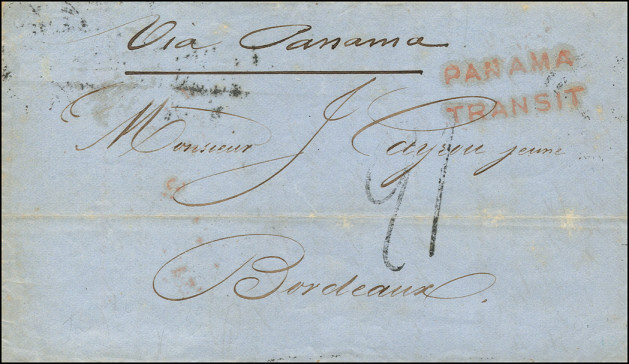 Via Panama
PANAMA
TRANSIT
Monsieur J Cayrou jeune
21
Bordeaux.